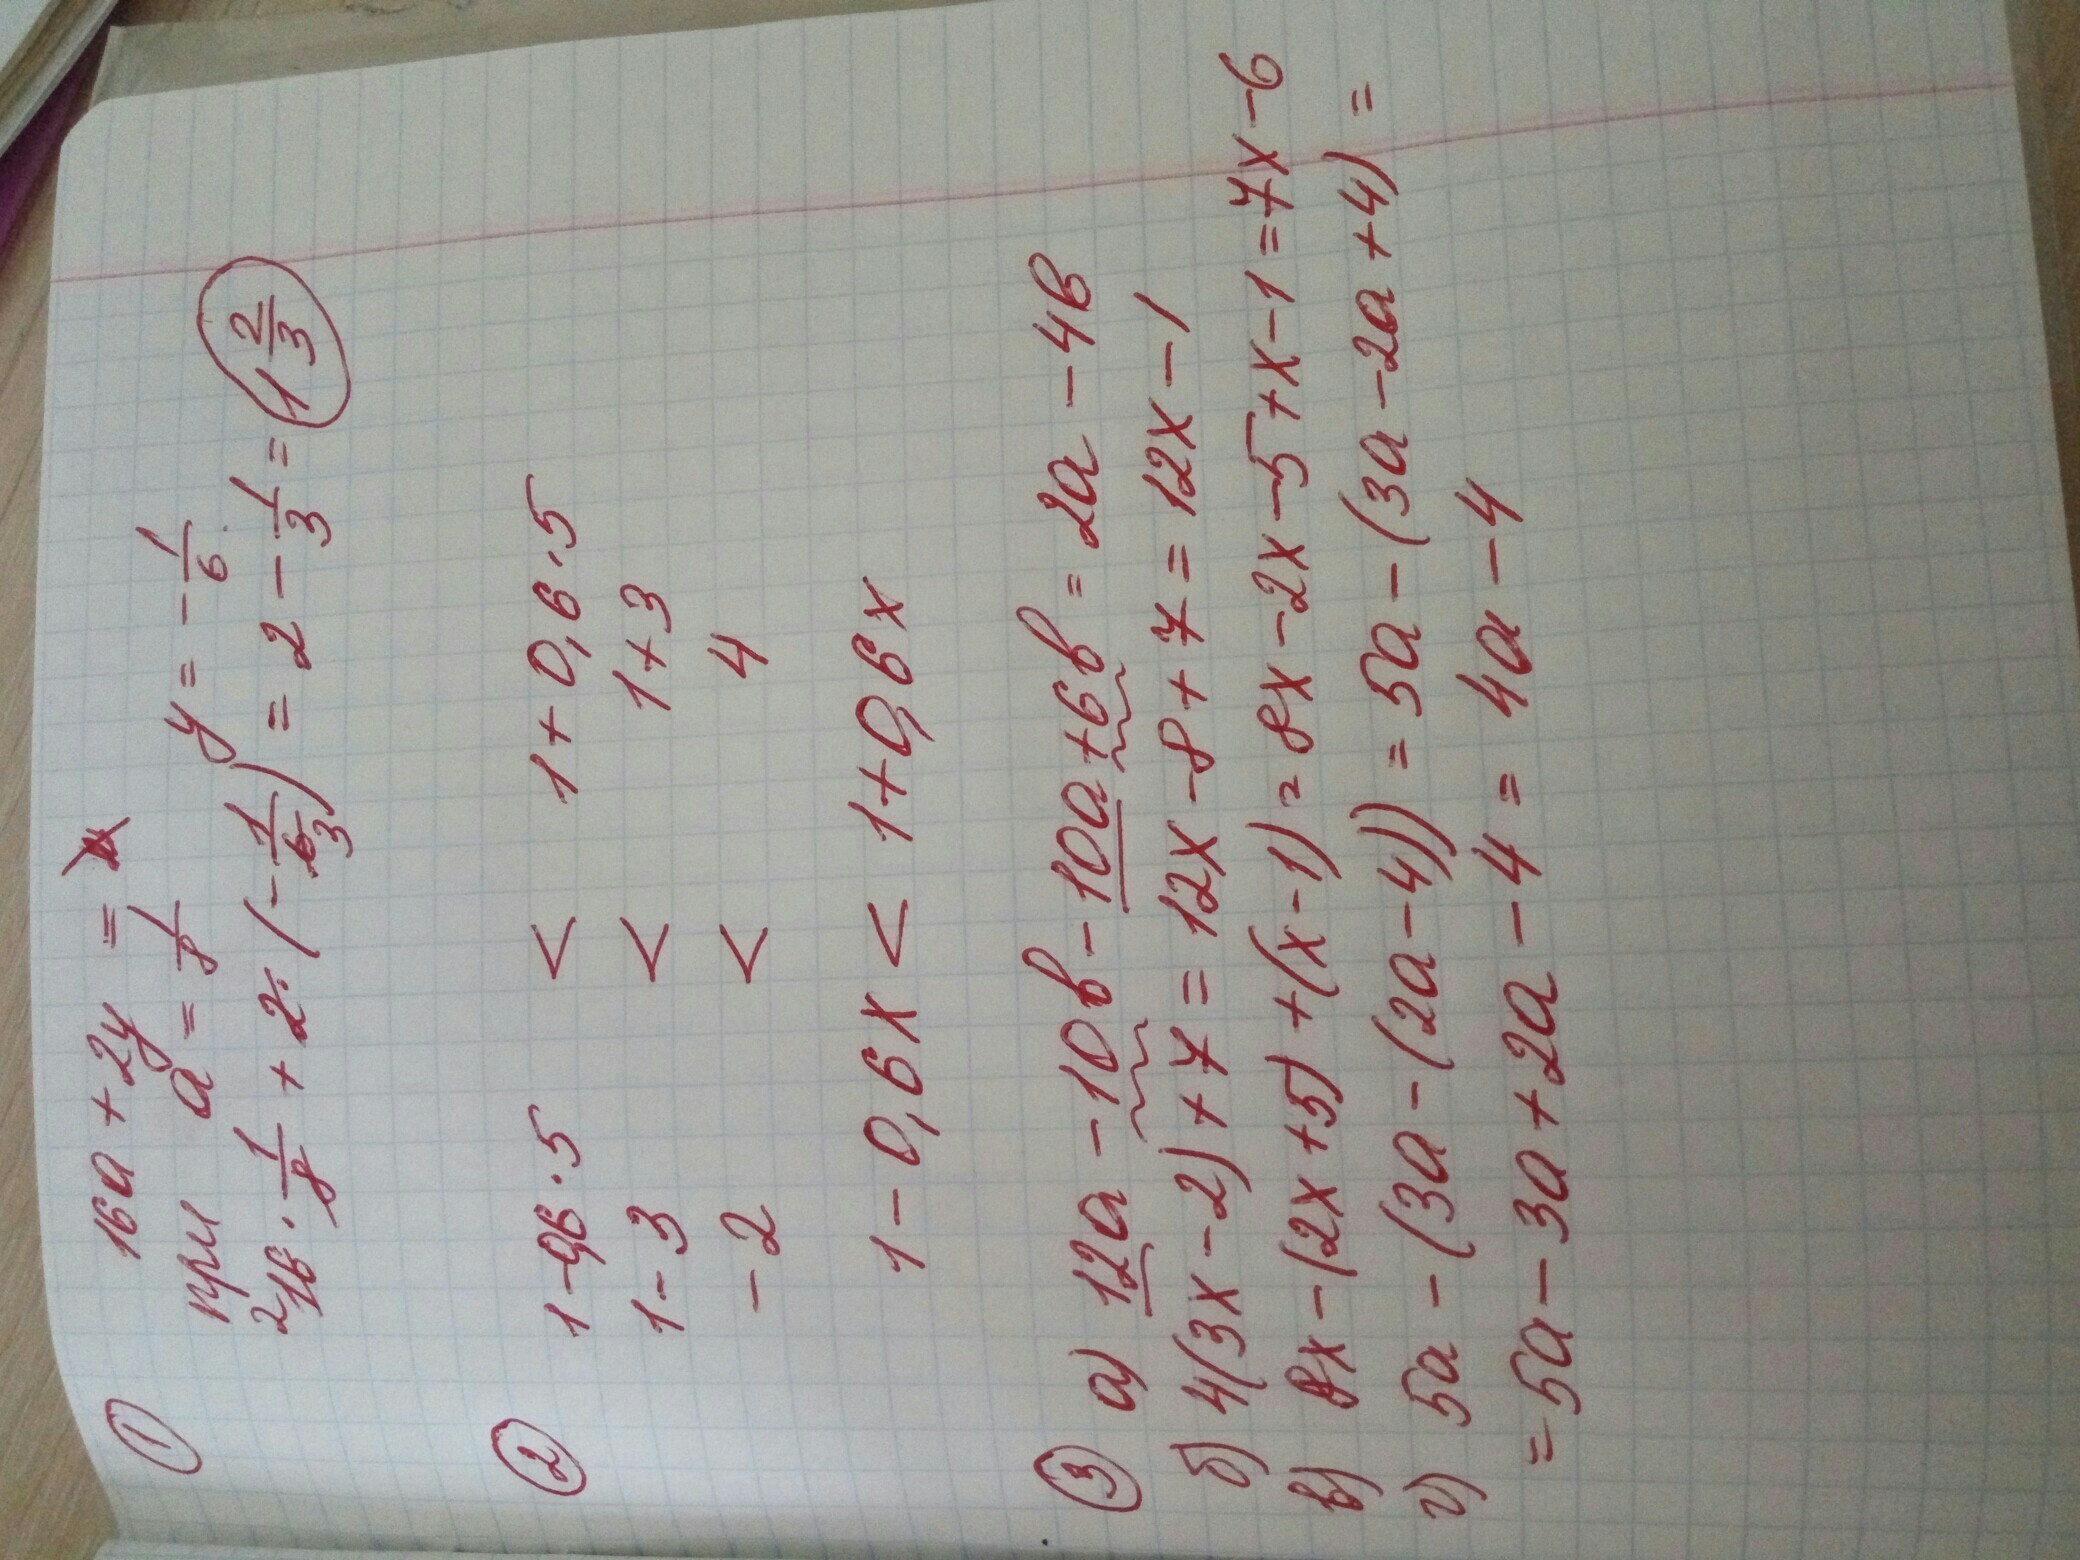 ① 16a + 2y =
при a = 1/8 y = -1/6
16 · 1/8 + 2 · (-1/6) = 2 - 1/3 = 1 2/3
② 1 - 0,6 · 5 < 1 + 0,6 · 5
1 - 3 < 1 + 3
-2 < 4
1 - 0,6x < 1 + 0,6x
③ а) 12a - 10b - 10a + 6b = 2a - 4b
б) 4(3x - 2) + 7 = 12x - 8 + 7 = 12x - 1
в) 8x - (2x + 5) + (x - 1) = 8x - 2x - 5 + x - 1 = 7x - 6
г) 5a - (3a - (2a - 4)) = 5a - (3a - 2a + 4) =
= 5a - 3a + 2a - 4 = 4a - 4